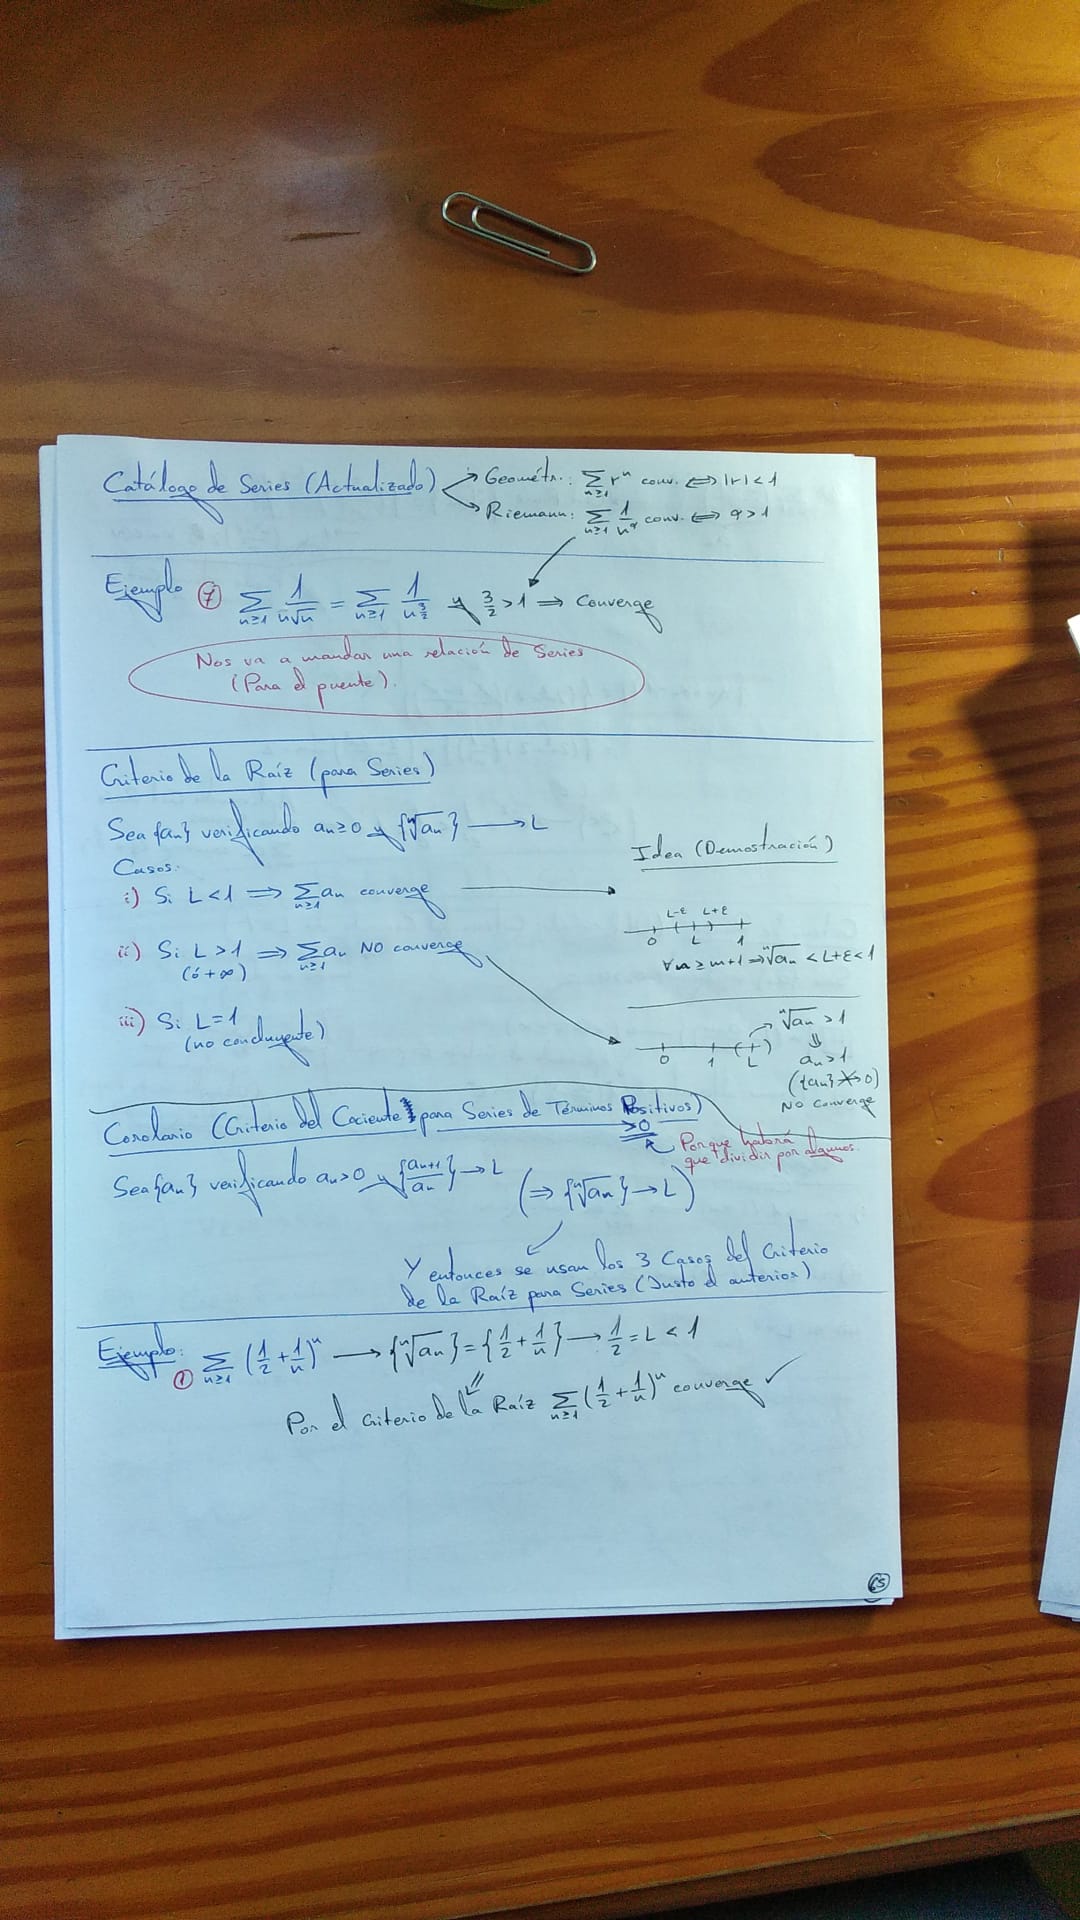 Catálogo de Series (Actualizado)
Geométr.: ∑_{n≥1} rⁿ conv. ⟺ |r| < 1
Riemann: ∑_{n≥1} 1/n^α conv. ⟺ α > 1
Ejemplo ⑦ ∑_{n≥1} 1/(n√n) = ∑_{n≥1} 1/n^{3/2} y 3/2 > 1 ⟹ Converge
Nos va a mandar una relación de Series
(Para el puente).
Criterio de la Raíz (para Series)
Sea {aₙ} verificando aₙ ≥ 0 y {ⁿ√aₙ} ⟶ L
Casos:
i) Si L < 1 ⟹ ∑_{n≥1} aₙ converge
ii) Si L > 1 ⟹ ∑_{n≥1} aₙ NO converge
(ó +∞)
iii) Si L = 1
(no concluyente)
Idea (Demostración)
L-ε L+ε
0 L 1
∀n ≥ m+1 ⟹ ⁿ√aₙ < L+ε < 1
ⁿ√aₙ > 1
⇓
0 1 L
aₙ > 1
({aₙ} ↛ 0)
NO converge
Corolario (Criterio del Cociente para Series de Términos Positivos)
>0
Porque habrá
que dividir por algunos.
Sea {aₙ} verificando aₙ > 0 y {aₙ₊₁/aₙ} ⟶ L (⟹ {ⁿ√aₙ} ⟶ L)
Y entonces se usan los 3 Casos del Criterio
de la Raíz para Series (Justo el anterior)
Ejemplo:
① ∑_{n≥1} (1/2 + 1/n)ⁿ ⟶ {ⁿ√aₙ} = {1/2 + 1/n} ⟶ 1/2 = L < 1
⇓
Por el Criterio de la Raíz ∑_{n≥1} (1/2 + 1/n)ⁿ converge ✓